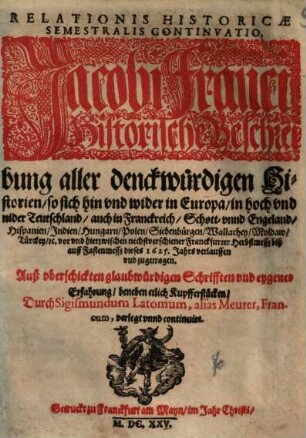 RELATIONIS HISTORICÆ
SEMESTRALIS CONTINVATIO,
Jacobi Franci
Historische Beschrei-
bung aller denckwürdigen Hi-
storien/ so sich hin vnd wider in Europa/ in hoch vnd
nider Teutschland/ auch in Franckreich/ Schott- vnnd Engeland/
Hispanien/ Indien/ Hungarn/ Polen/ Siebenbürgen/ Wallachey/ Moldaw/
Türckey/ ꝛc. vor vnd hierzwischen nechstverschiener Franckfurter Herbstmeß biß
auff Fastenmeß dieses 1625. Jahrs verlauffen
vnd zugetragen.
Auß vberschickten glaubwürdigen Schrifften vnd eygener
Erfahrung/ beneben etlich Kupfferstücken/
Durch Sigismundum Latomum, alias Meurer, Fran-
cum, verlegt vnnd continuirt.
Getruckt zu Franckfurt am Mayn/ im Jahr Christi/
M. DC. XXV.